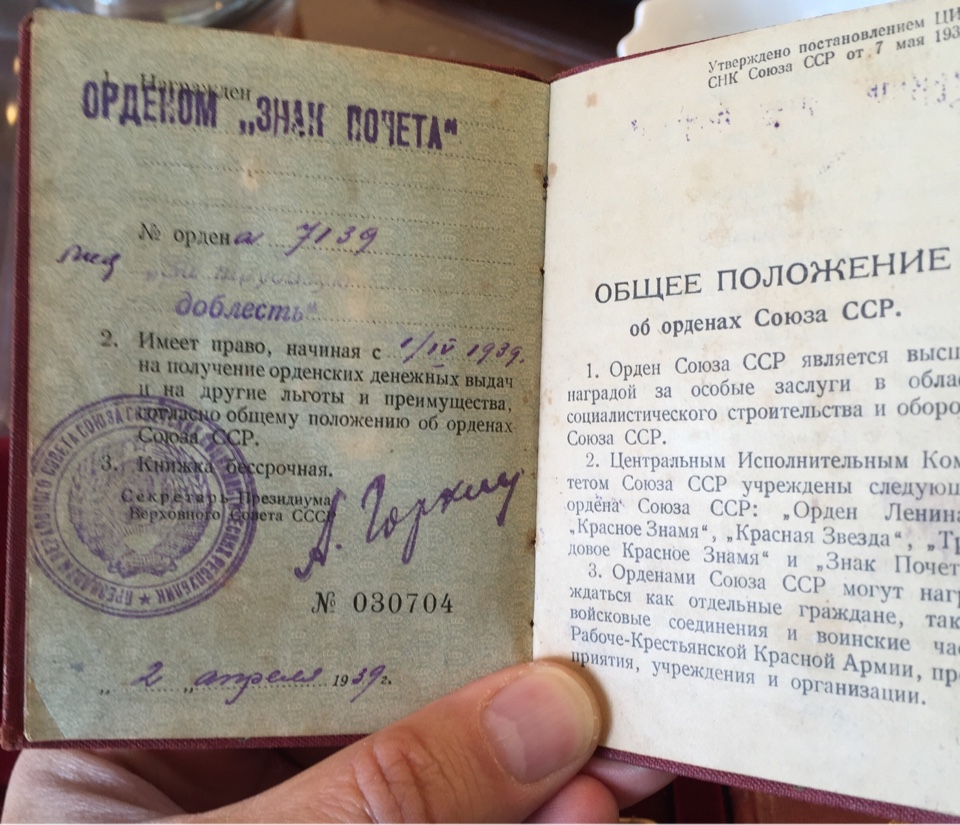 1. Награжден
ОРДЕНОМ „ЗНАК ПОЧЕТА“
№ ордена 7139
мед „За трудовую
доблесть“
2. Имеет право, начиная с 1/IV 1939.
на получение орденских денежных выдач
и на другие льготы и преимущества,
согласно общему положению об орденах
Союза ССР.
3. Книжка бессрочная.
Секретарь Президиума
Верховного Совета СССР
А. Горкин
№ 030704
„ 2 „ апреля 1939г.
Утверждено постановлением ЦИ
СНК Союза ССР от 7 мая 193
ОБЩЕЕ ПОЛОЖЕНИЕ
об орденах Союза ССР.
1. Орден Союза ССР является высш
наградой за особые заслуги в обла
социалистического строительства и оборо
Союза ССР.
2. Центральным Исполнительным Ком
тетом Союза ССР учреждены следующ
ордена Союза ССР: „Орден Ленина
„Красное Знамя“, „Красная Звезда“, „Тр
довое Красное Знамя“ и „Знак Почет
3. Орденами Союза ССР могут нагр
ждаться как отдельные граждане, так
войсковые соединения и воинские ча
Рабоче-Крестьянской Красной Армии, пр
приятия, учреждения и организации.